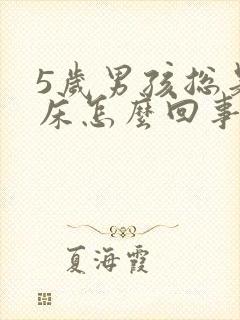 5歲男孩总
床怎麼回事
夏海霞